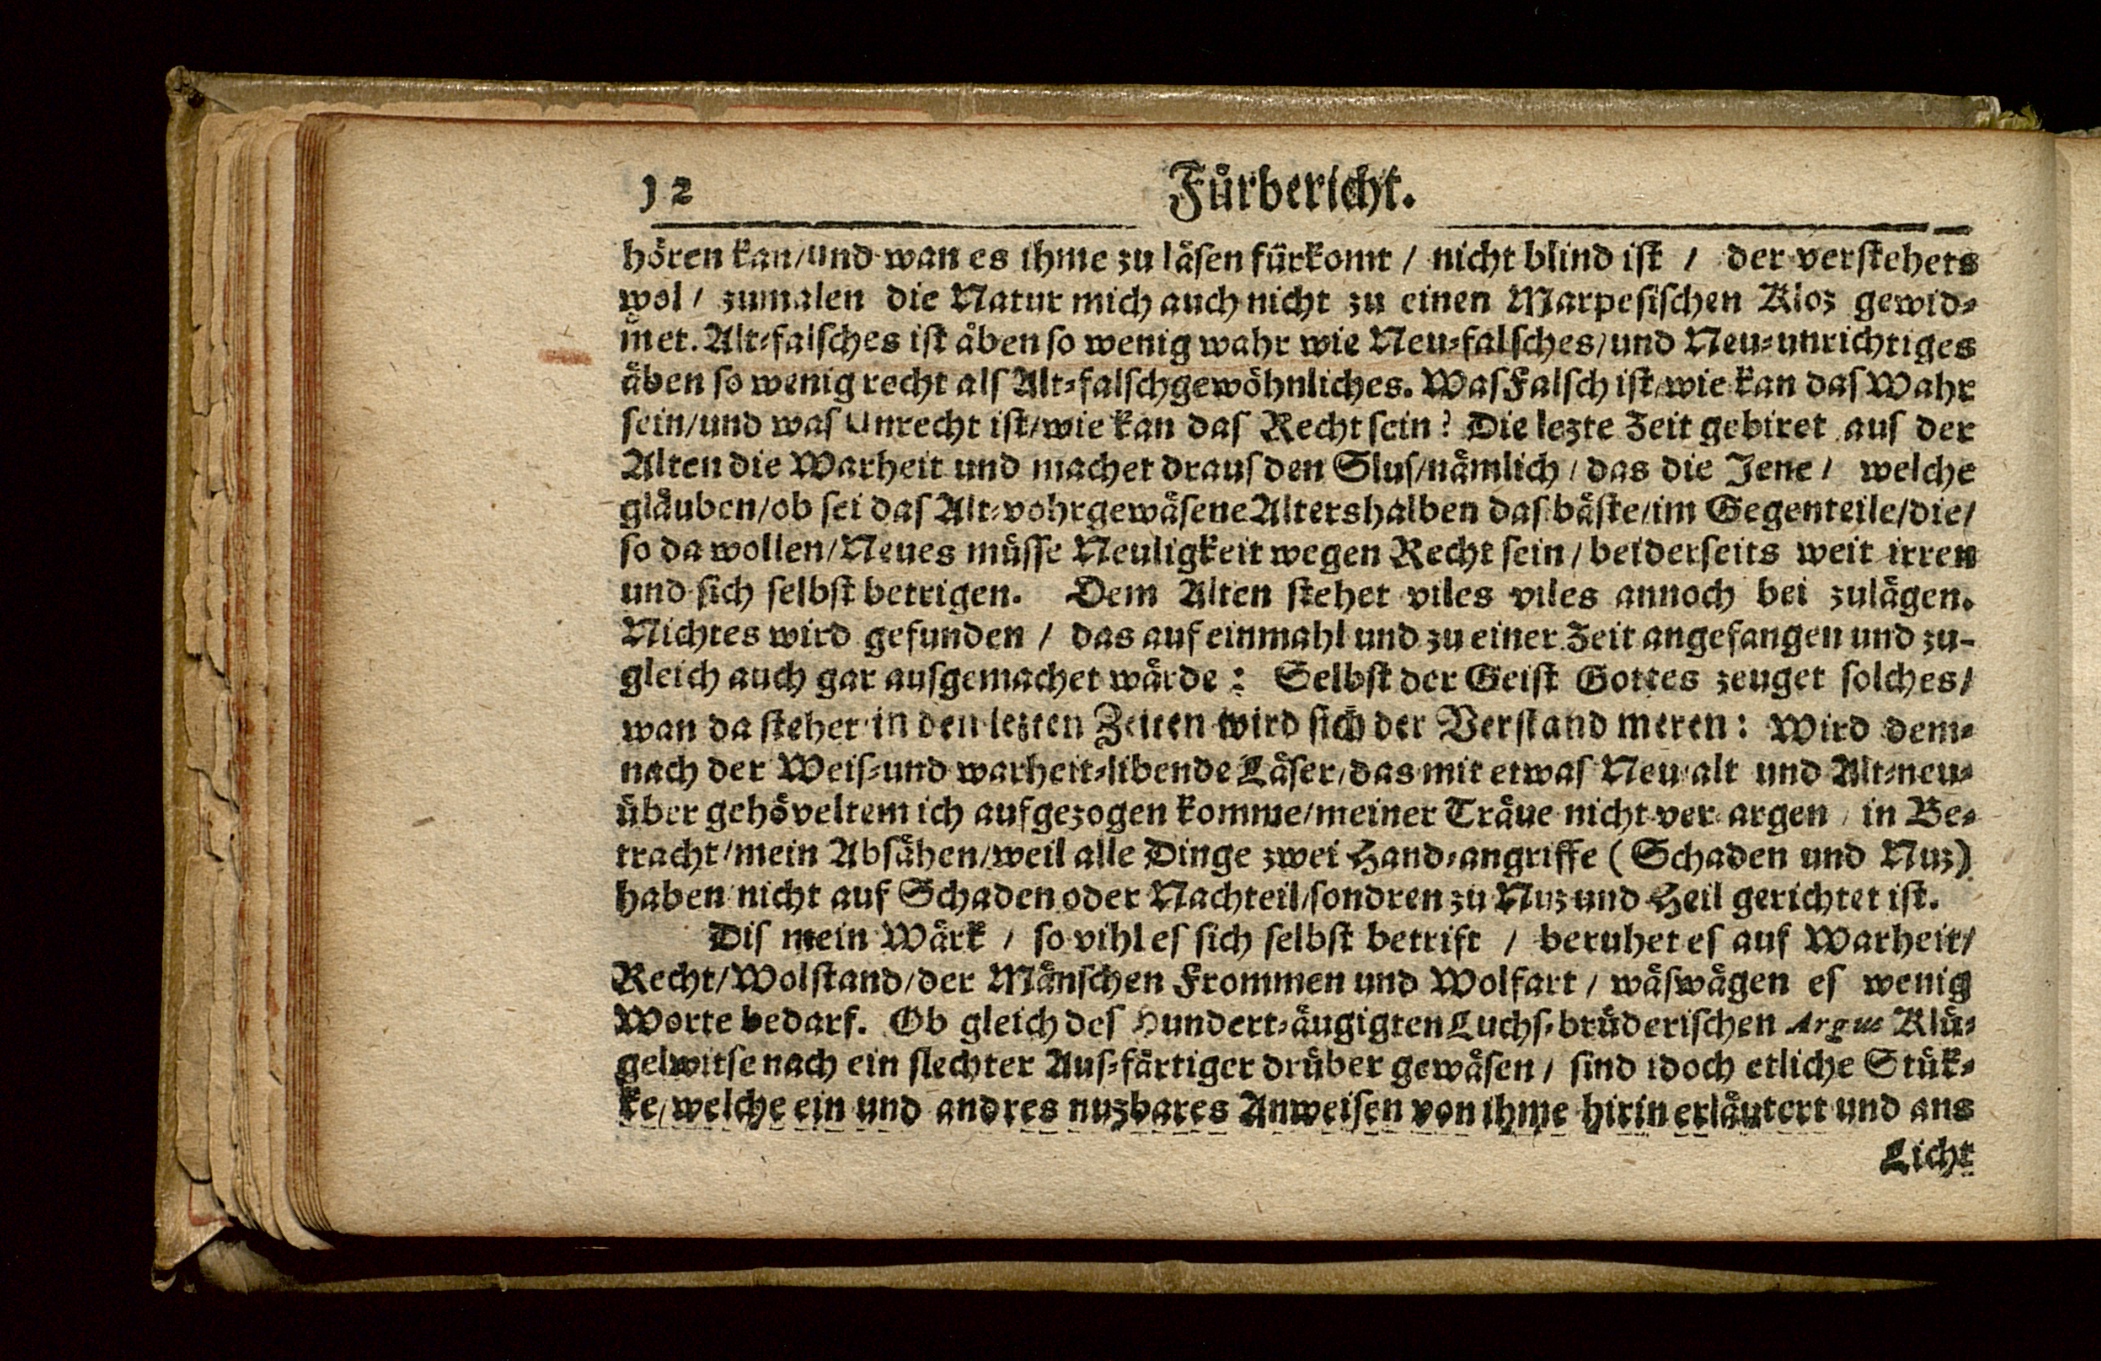 12 Fürbericht.
hören kan/und wan es ihme zu läsen fürkomt / nicht blind ist / der verstehets
wol / zumalen die Natur mich auch nicht zu einen Marpesischen Kloz gewid⸗
met. Alt⸗falsches ist äben so wenig wahr wie Neu⸗falsches/und Neu⸗unrichtiges
äben so wenig recht als Alt⸗falschgewöhnliches. Was Falsch ist/wie kan das Wahr
sein/und was Unrecht ist/wie kan das Recht sein? Die lezte Zeit gebiret aus der
Alten die Warheit und machet draus den Slus/nämlich / das die Jene / welche
gläuben/ob sei das Alt⸗vohrgewäsene Altershalben das bäste/im Gegenteile/die/
so da wollen/Neues müsse Neuligkeit wegen Recht sein / beiderseits weit irren
und sich selbst betrigen. Dem Alten stehet viles viles annoch bei zulägen.
Nichtes wird gefunden / das auf einmahl und zu einer Zeit angefangen und zu-
gleich auch gar ausgemachet wärde: Selbst der Geist Gottes zeuget solches/
wan da stehet in den lezten Zeiten wird sich der Verstand meren: Wird dem⸗
nach der Weis⸗und warheit⸗libende Läser/das mit etwas Neu⸗alt und Alt⸗neu⸗
über gehöveltem ich aufgezogen komme/meiner Träue nicht ver argen / in Be⸗
tracht/mein Absähen/weil alle Dinge zwei Hand⸗angriffe (Schaden und Nuz)
haben/nicht auf Schaden oder Nachteil/sondren zu Nuz und Heil gerichtet ist.
Dis mein Wärk / so vihl es sich selbst betrift / beruhet es auf Warheit/
Recht/Wolstand/der Mänschen Frommen und Wolfart / wäswägen es wenig
Worte bedarf. Ob gleich des Hundert⸗äugigten Luchs⸗brüderischen Argus Klü⸗
gelwitse nach ein slechter Aus⸗färtiger drüber gewäsen / sind idoch etliche Stük⸗
ke/welche ein und andres nuzbares Anweisen von ihme hirin erläutert und ans
Licht